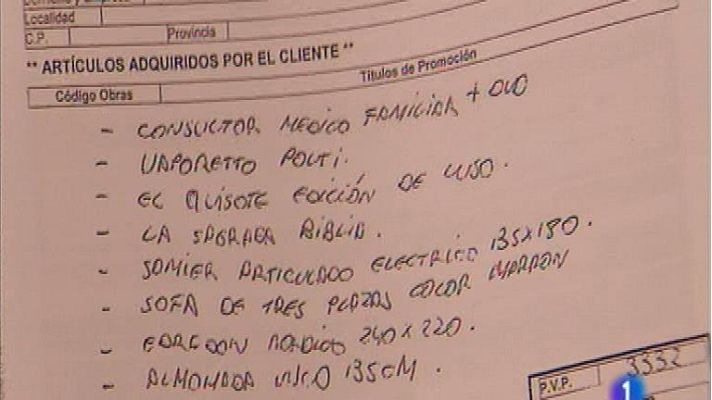 Localidad
C.P. Provincia
** ARTÍCULOS ADQUIRIDOS POR EL CLIENTE **
Código Obras Títulos de Promoción
- CONSULTOR MEDICO FAMILIAR + DVD
- VAPORETTO POLTI.
- EL QUIJOTE EDICIÓN DE LUJO.
- LA SAGRADA BIBLIA.
- SOMIER ARTICULADO ELECTRICO 135X180.
- SOFA DE TRES PLAZAS COLOR MARRON
- EDREDON NORDICO 240X220.
- ALMOHADA VISCO 135CM.
P.V.P. 3332
1